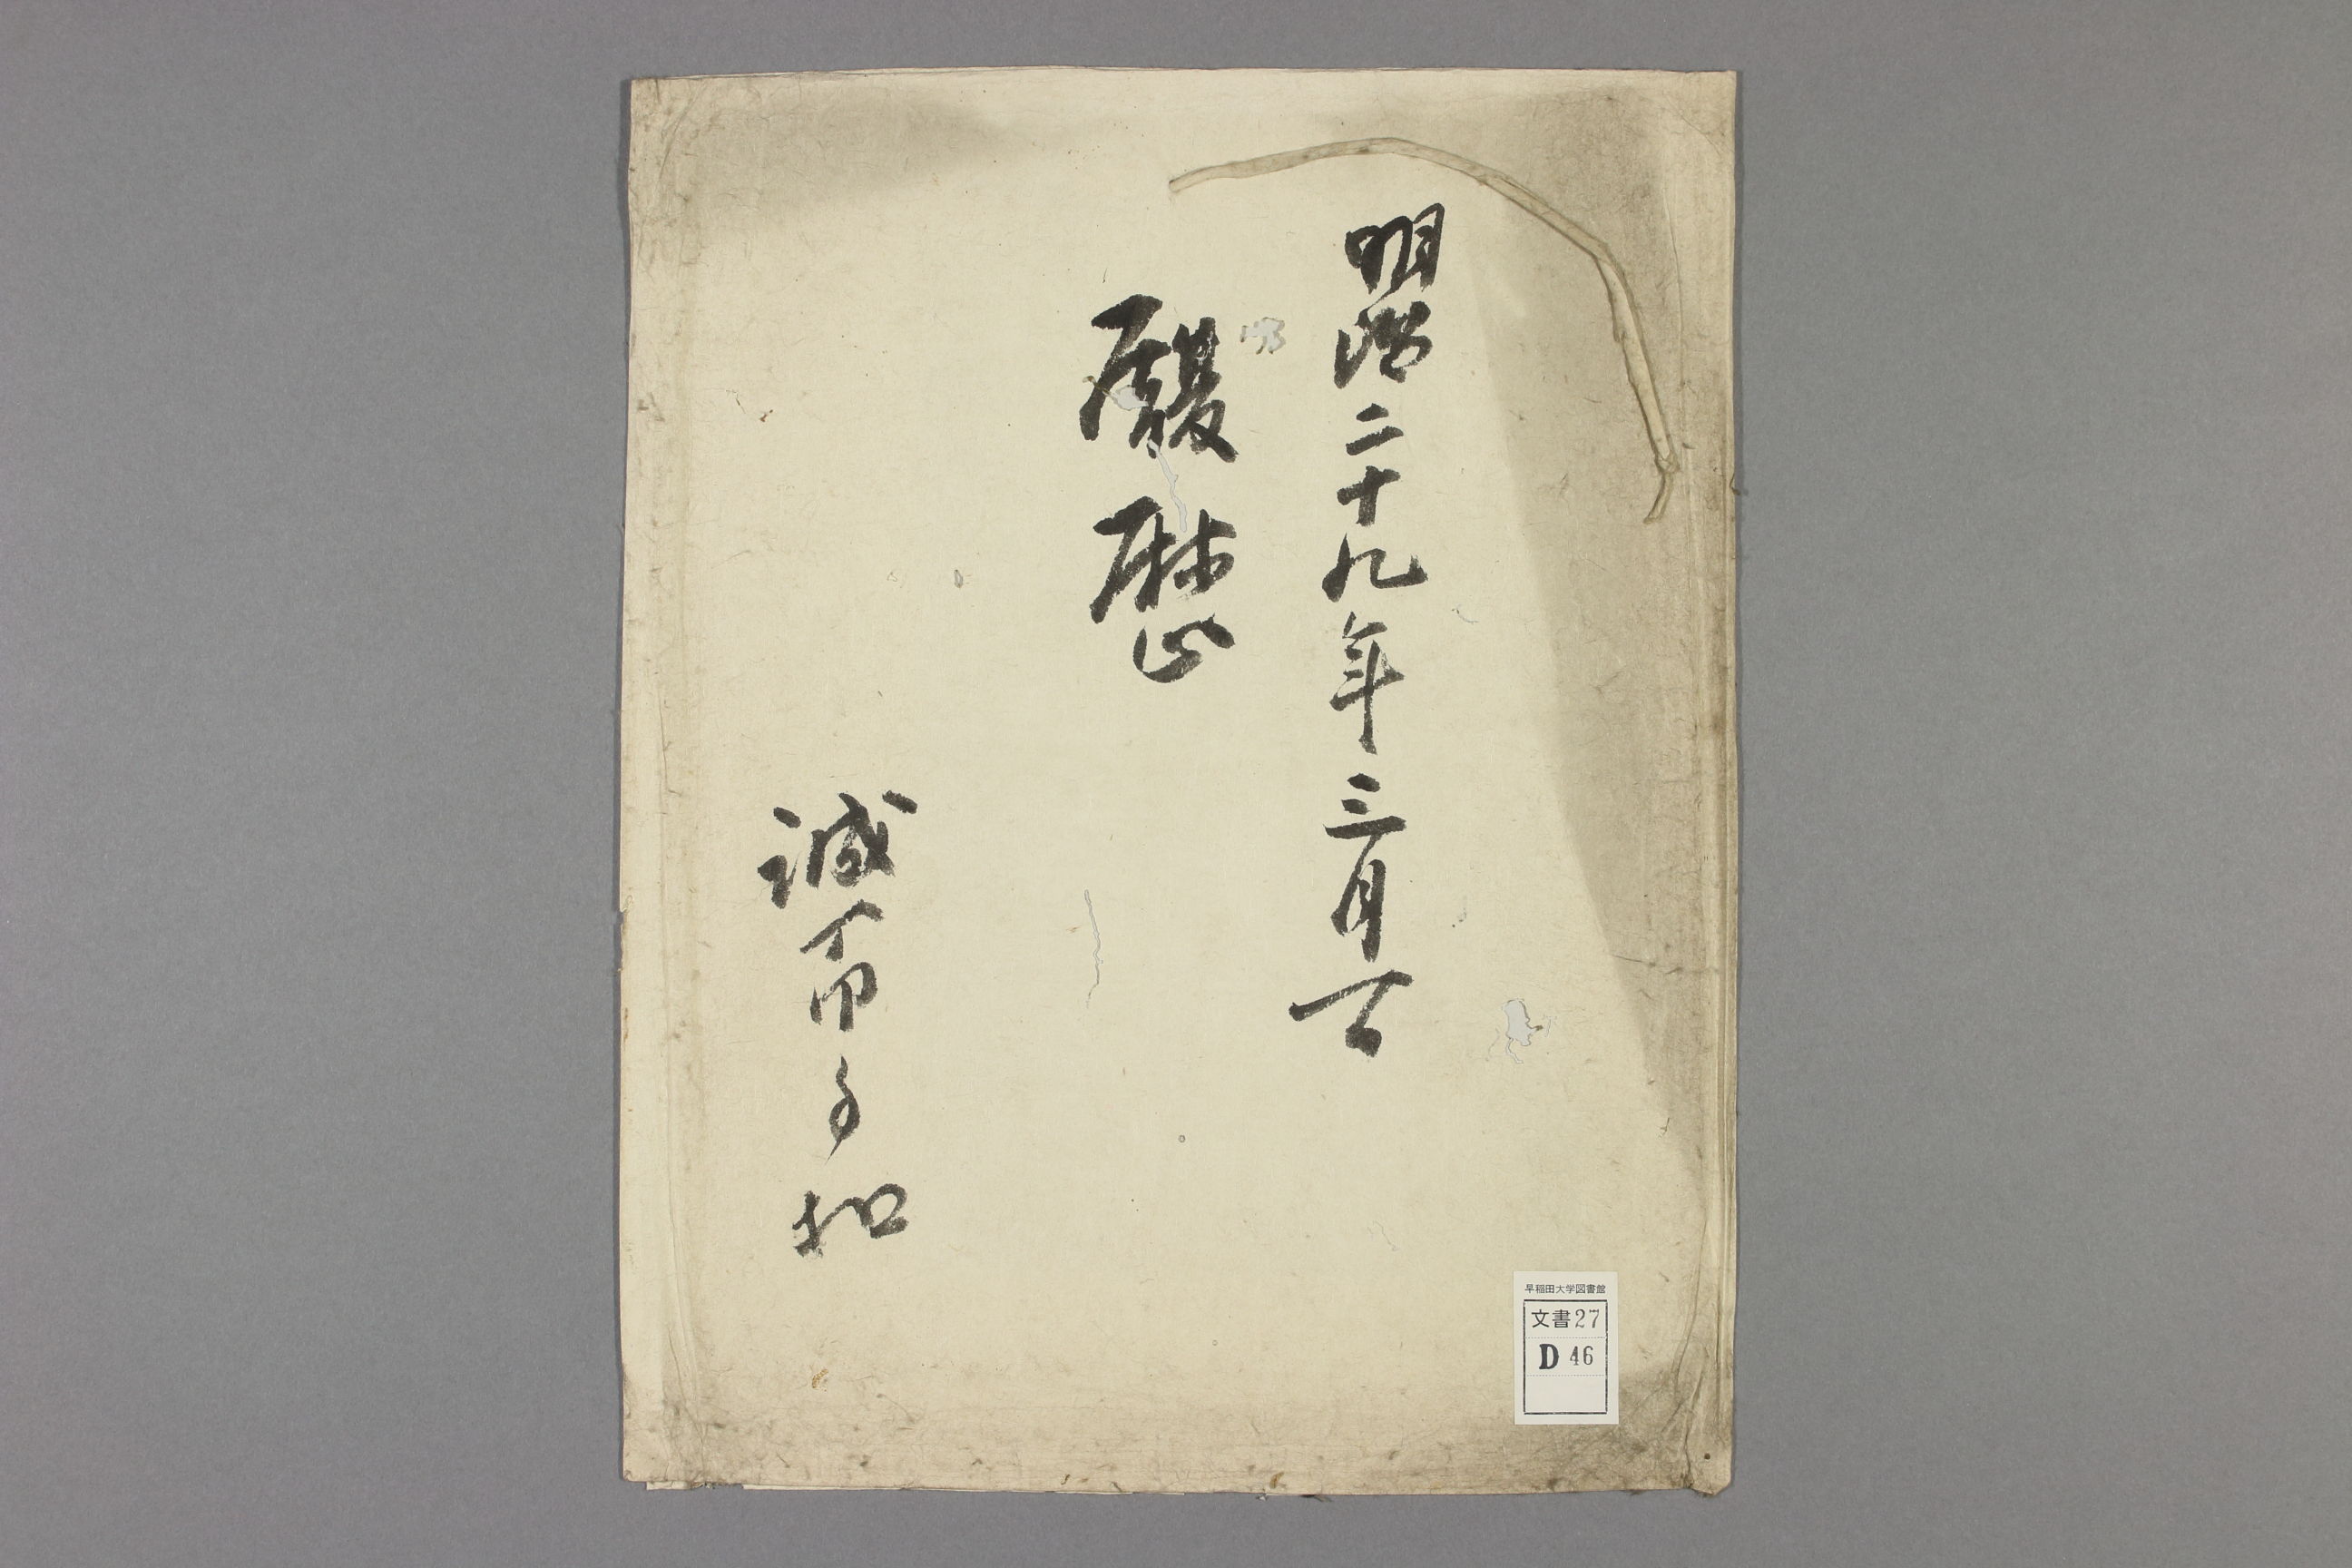 明治二十九年三月
履歴
誠斎手扣
早稲田大学図書館
文書27
D 46